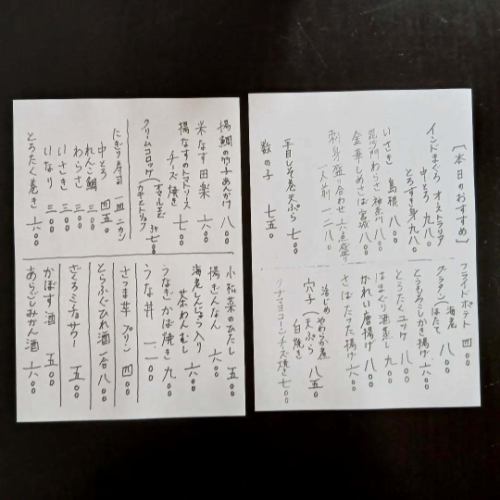 〔本日のおすすめ〕
インドまぐろ オーストラリア
中とろ 九八〇
とろすき身 九八〇
いさき 島根 八八〇
わらさ 神奈川 八八〇
金華しめさば 宮城 八八〇
刺身盛り合わせ 六点盛り
一人前 一二八〇
平目しそ巻天ぷら 七五〇
数の子 七五〇
フライドポテト 四〇〇
グラタン(ほたて 海老 八〇〇
とうもろこしかき揚げ 六〇〇
とろたくユッケ 八〇〇
はまぐり酒蒸し 八〇〇
かれい唐揚げ 八〇〇
さばたつた揚げ 六〇〇
穴子(天ぷら 白焼き 八五〇
ツナマヨコーンチーズ焼き 七〇〇
揚鯛の竹子あんかけ 八〇〇
米なす田楽 六〇〇
揚なすのトマトソース
チーズ焼き 七〇〇
クリームコロッケ
にぎり寿司 一皿二カン
中とろ 四五〇
れんこ鯛 三〇〇
わらさ 三〇〇
いさき 三〇〇
いなり 三〇〇
とろたく巻き 六〇〇
小松菜のひたし 五〇〇
揚ぎんなん 六〇〇
海老しんじょう入り
茶わんむし 六〇〇
うなぎかば焼き 九〇〇
うな丼 一一〇〇
さつま芋プリン 四〇〇
とらふぐひれ酒 一合 八〇〇
ざくろミチョサワー 五〇〇
かぼす酒 五〇〇
あらごしみかん酒 六〇〇